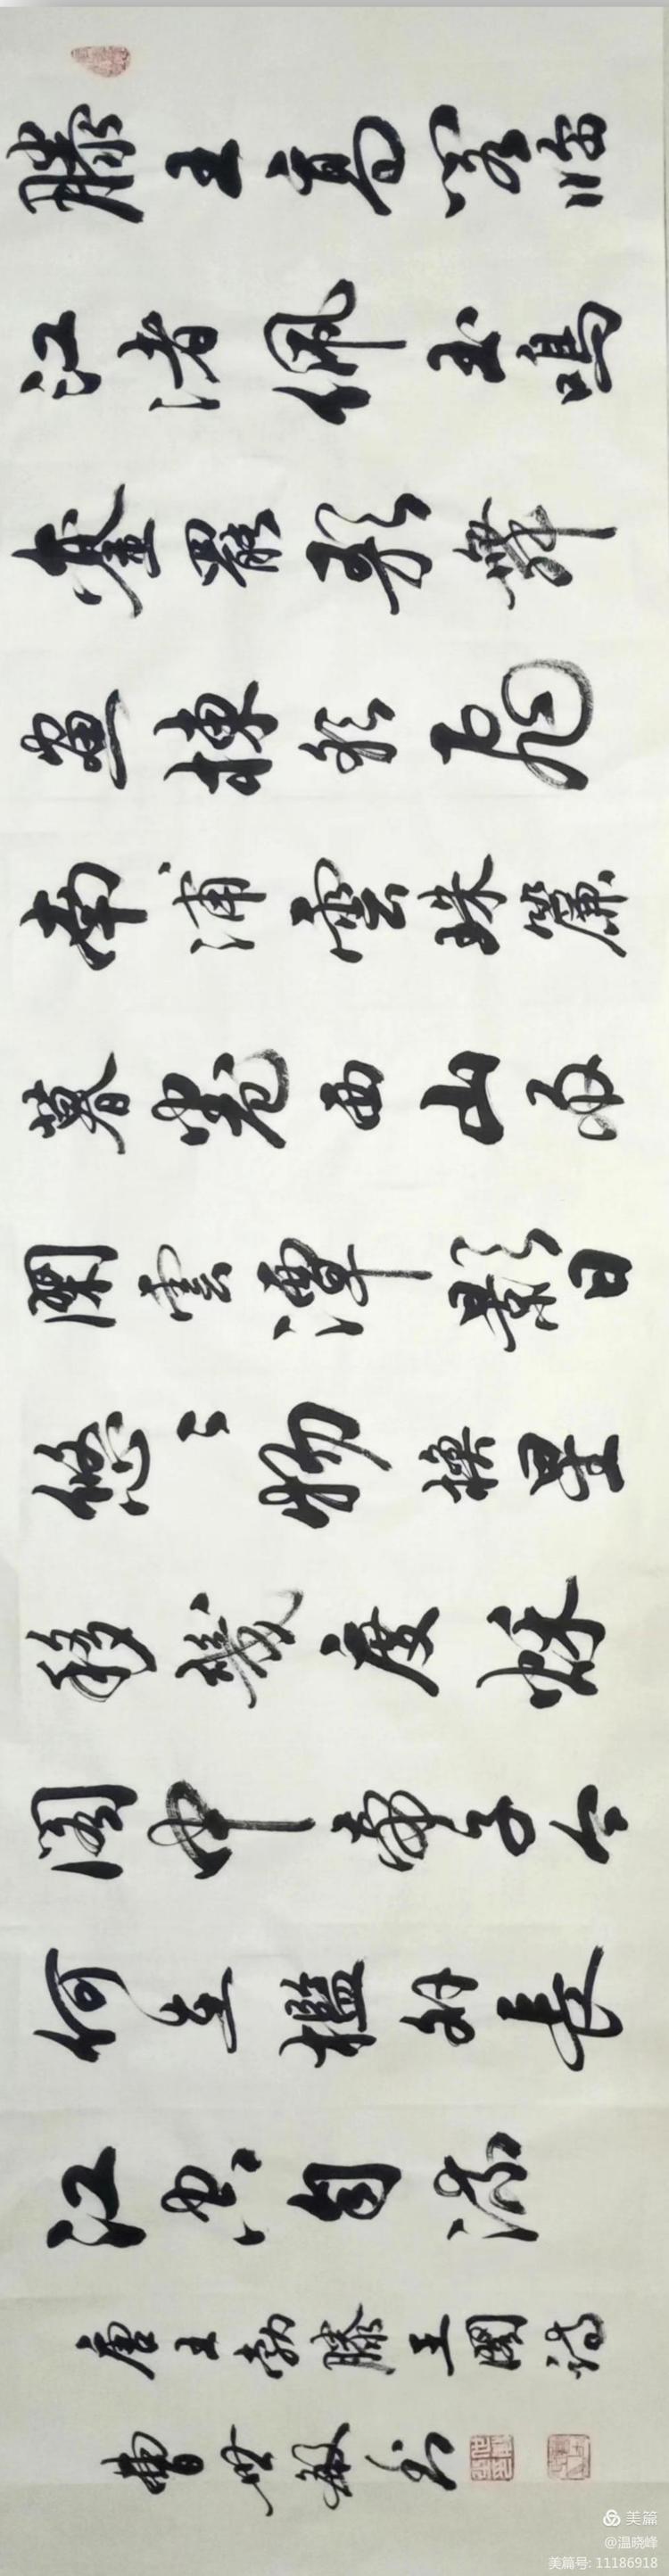 滕王高閣临
江渚佩玉鳴
鸞罷歌舞
畫棟朝飛
南浦雲珠簾
暮捲西山雨
閑雲潭影日
悠々物換星
移幾度秋
閣中帝子今
何在檻外長
江空自流
唐王勃滕王閣詩
曹
美篇
@温晓峰
美篇号: 11186918